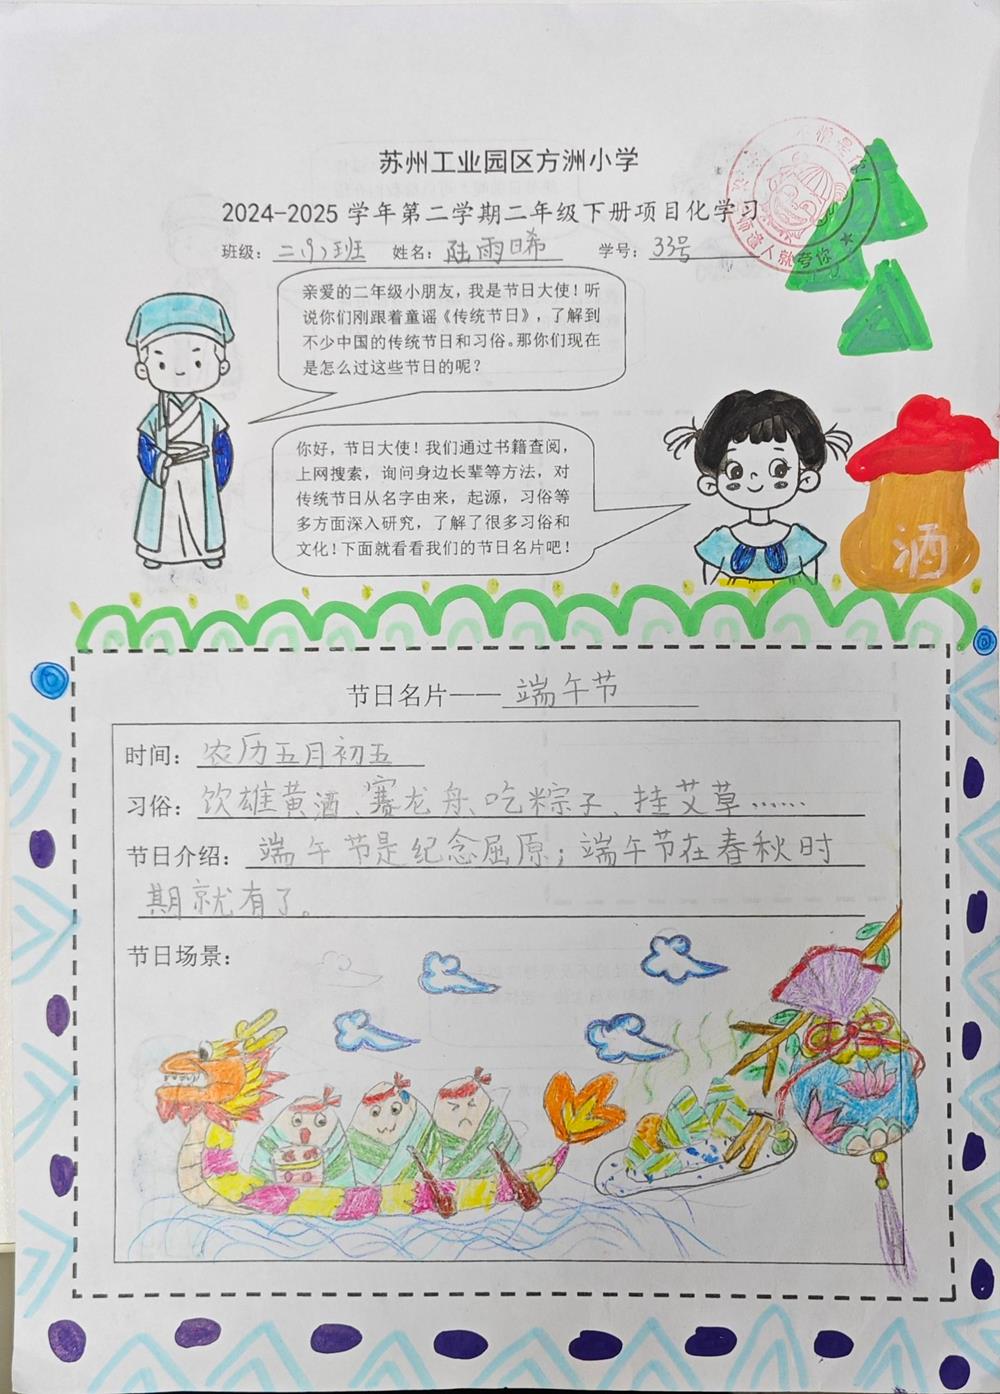 苏州工业园区方洲小学
2024-2025 学年第二学期二年级下册项目化学习
班级：二(9)班 姓名：陆雨晞 学号：33号
亲爱的二年级小朋友，我是节日大使！听
说你们刚跟着童谣《传统节日》，了解到
不少中国的传统节日和习俗。那你们现在
是怎么过这些节日的呢？
你好，节日大使！我们通过书籍查阅，
上网搜索，询问身边长辈等方法，对
传统节日从名字由来，起源，习俗等
多方面深入研究，了解了很多习俗和
文化！下面就看看我们的节日名片吧！
酒
节日名片——端午节
时间：农历五月初五
习俗：饮雄黄酒、赛龙舟、吃粽子、挂艾草……
节日介绍：端午节是纪念屈原；端午节在春秋时
期就有了。
节日场景：